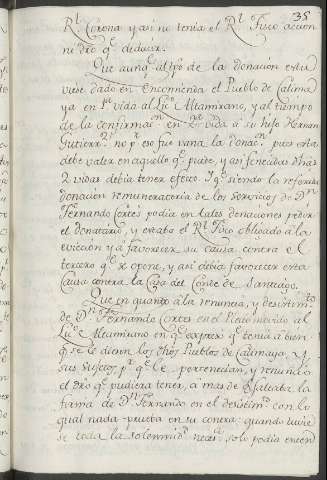 35
Rl. Corona y asi no tenia el Rl. Fisco accion
ni dro qe. deducir.
Que aunqe. al tpo de la donacion estu
viese dado en Encomienda el Pueblo de Calima
ya en 1a. vida al Lice. Altamirano, y al tiempo
de la confirmaon. en 2a. vida á su hijo Hernan
Gutierrz. no pr. eso fue vana la donacon. pues esta
debe valer en aquello qe. puede, y asi fenecidas dhas
2 vidas debia tener efecto. Y qe. siendo la referida
donacion remuneratoria de los servicios de Dn.
Fernando Cortes podia en tales donaciones pedir
el donatario, y estaba el Rl. Fisco obligado á la
eviccion y á favorecer su causa contra el
tercero qe. se opone, y asi debia favorecer esta
Causa contra la Casa del Conde de Santiago.
Que en quanto à la renuncia, y desistimto.
de Dn. Fernando Cortes en el Reconocido al
Lice. Altamirano en qe. expreso qe. tenia a bien
qe. se le diesen los dhos Pueblos de Calimaya, y
sus sugetos pr. qe. le pertenecian, y renunció
el dro qe. pudiera tener, a mas de qe. faltaba la
firma de Dn. Fernando en el desistimto. con lo
qual nada prueba en su contra: quando tuvie
se toda la solemnidad necesa. solo podia enten